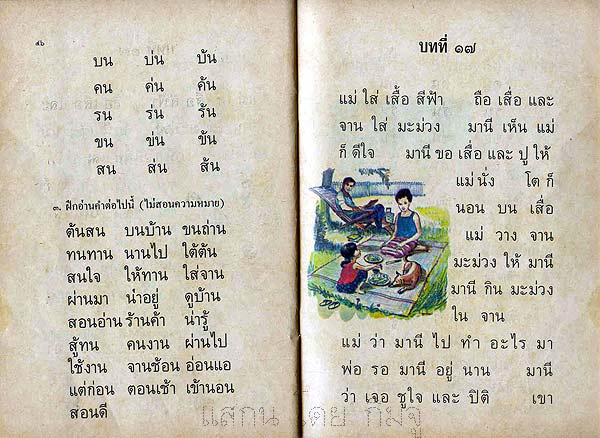 ๕๖
บน บ่น บ้น
คน ค่น ค้น
รน ร่น ร้น
ขน ข่น ข้น
สน ส่น ส้น
๓. ฝึกอ่านคำต่อไปนี้ (ไม่สอนความหมาย)
ต้นสน บนบ้าน ขนถ่าน
ทนทาน นานไป ใต้ต้น
สนใจ ให้ทาน ใส่จาน
ผ่านมา น่าอยู่ ดูบ้าน
สอนอ่าน ร้านค้า น่ารู้
สู้ทน คนงาน ผ่านไป
ใช้งาน จานช้อน อ่อนแอ
แต่ก่อน ตอนเช้า เข้านอน
สอนดี
บทที่ ๑๗
แม่ ใส่ เสื้อ สีฟ้า ถือ เสื่อ และ
จาน ใส่ มะม่วง มานี เห็น แม่
ก็ ดีใจ มานี ขอ เสื่อ และ ปู ให้
แม่ นั่ง โต ก็
นอน บน เสื่อ
แม่ วาง จาน
มะม่วง ให้ มานี
มานี กิน มะม่วง
ใน จาน
แม่ ว่า มานี ไป ทำ อะไร มา
พ่อ รอ มานี อยู่ นาน มานี
ว่า เจอ ชูใจ และ ปิติ เขา
แสกน โดย กมจู